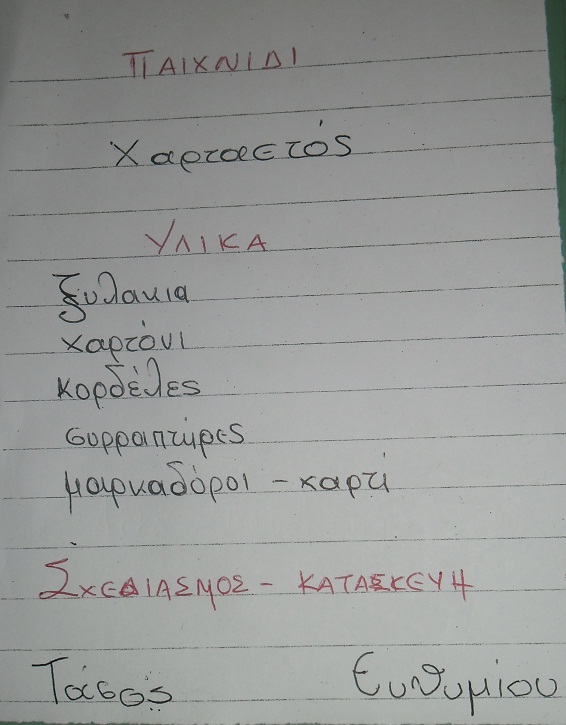 ΠΑΙΧΝΙΔΙ
Χαρταετός
ΥΛΙΚΑ
ξυλακια
χαρτόνι
κορδέλες
συρραπτήρες
μαρκαδόροι - χαρτί
ΣΧΕΔΙΑΣΜΟΣ - ΚΑΤΑΣΚΕΥΗ
Τάσος Ευθυμίου